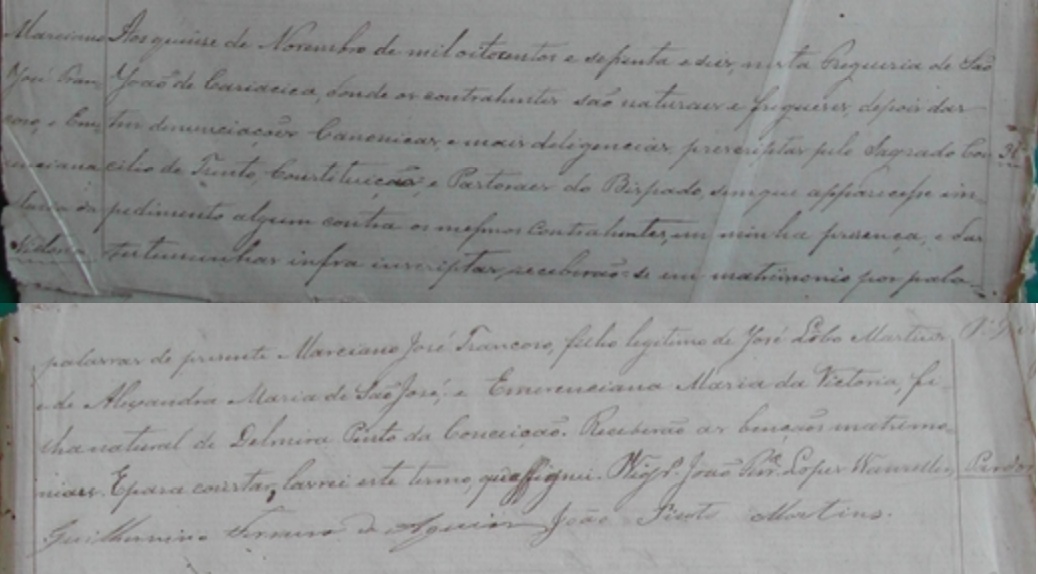 Marciano
José Tran
coso, e Eme
renciana
Maria da
Victoria
Aos quinse de Novembro de mil oitocentos e septenta e seis, nesta Freguesia de São
João de Cariacica, donde os contrahentes são naturaes e freguezes, depois das
tres denunciações Canonicas, e mais deligencias, prescriptas pelo Sagrado Con-
cilio de Trento, Constituição, e Pastoraes do Bispado, sem que apparecesse im-
pedimento algum contra os mesmos contrahentes, em minha presença, e das
testemunhas infra inscriptas, receberão-se em matrimonio por pala-
palavras de presente Marciano José Trancoso, filho legitimo de José Lôbo Martins
e de Alexandra Maria de São José; e Emerenciana Maria da Victoria, fi-
lha natural de Delmira Pinto da Conceição. Receberão as bençãos matrimo-
niaes. E para constar, lavrei este termo, que assignei. Vigrº. João Lopes Wanzeller
Guilhermino Ferreira de Aguiar João Pinto Martins.